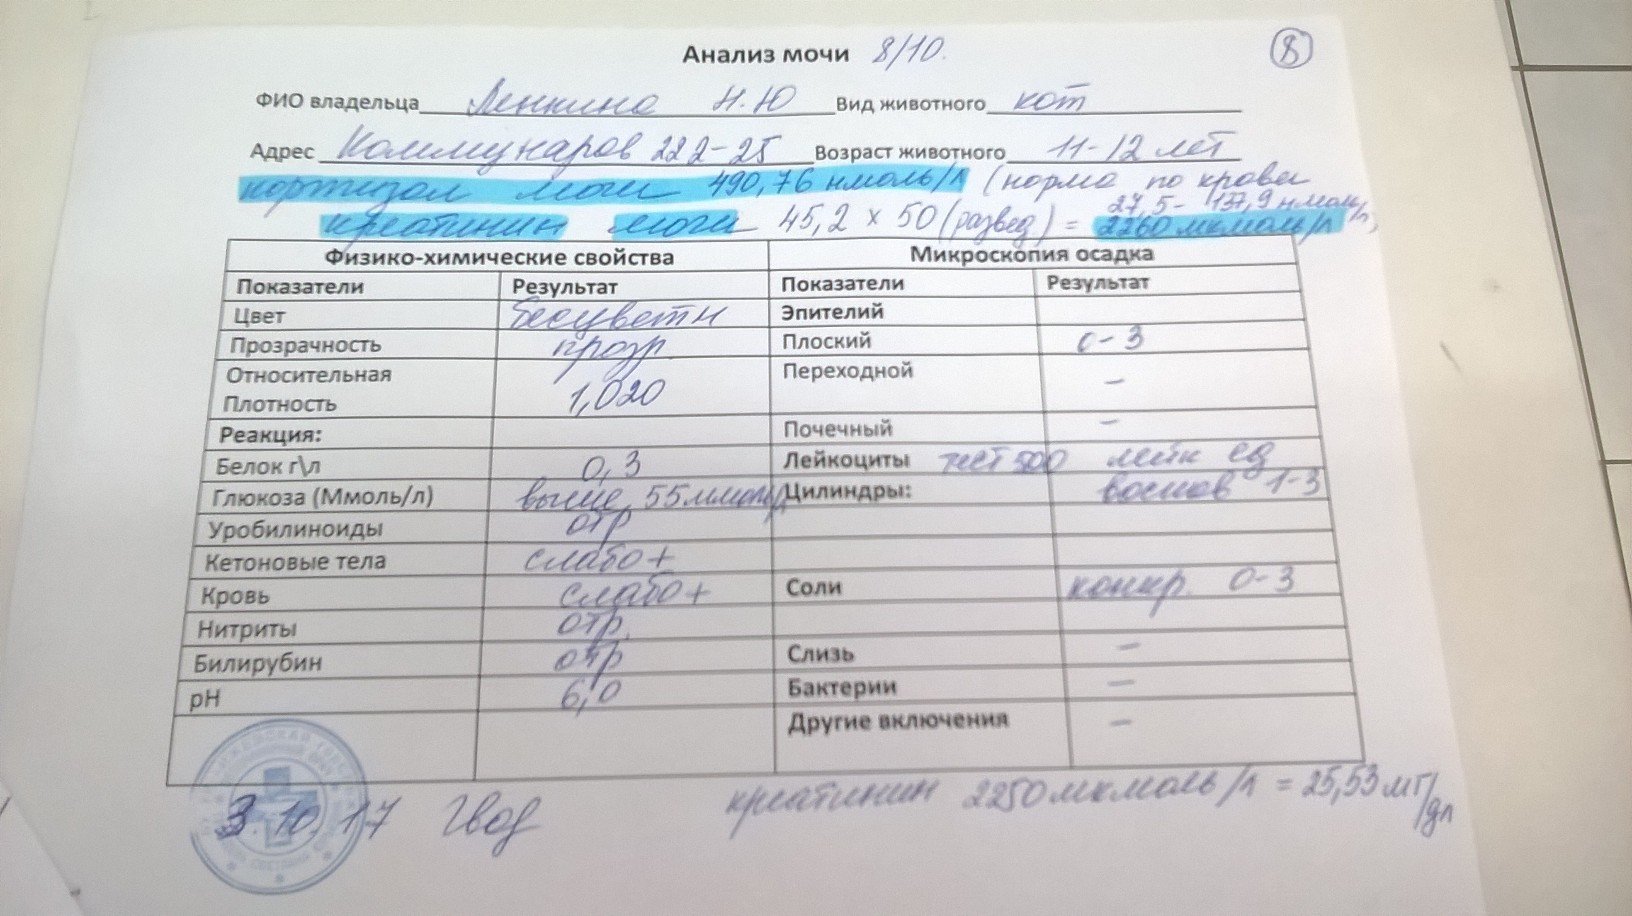 Анализ мочи 8/10.
8
ФИО владельца Ленкина Н.Ю Вид животного кот
Адрес Коммунаров 222-25 Возраст животного 11-12 лет
кортизол мочи 490,76 нмоль/л (норма по крови
27,5- нмоль/л,
креатинин мочи 45,2 х 50 (развед) = 2260 мкмоль/л
Физико-химические свойства Микроскопия осадка
Показатели Результат Показатели Результат
Цвет бесцветн Эпителий
Прозрачность прозр Плоский 0-3
Относительная Плотность 1,020 Переходной –
Реакция: Почечный –
Белок г\л 0,3 Лейкоциты тест 500 лейк ед
Глюкоза (Ммоль/л) выше 55 ммоль/л Цилиндры: восков 1-3
Уробилиноиды отр
Кетоновые тела слабо+
Кровь слабо+ Соли 0-3
Нитриты отр.
Билирубин отр Слизь –
pH 6,0 Бактерии –
Другие включения –
3.10.17
креатинин 2250 мкмоль/л = 25,53 мг/дл